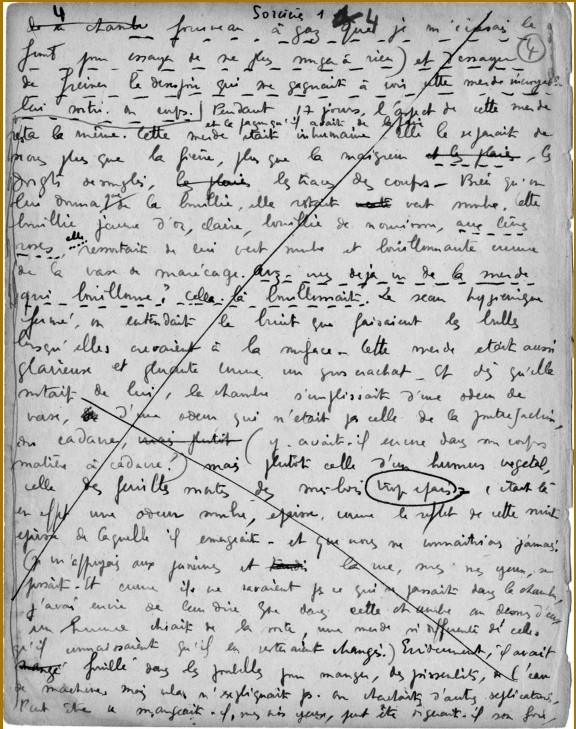 4 Sorciers 1 4
de la chambre fourneau à gaz que je m'écrasais le
front pour essayer de ne plus songer à rien) et d'essayer
de freiner le désespoir qui me gagnait à voir cette merde
lui sortir du corps. Pendant 17 jours, l'aspect de cette merde
resta le même. Cette merde était inhumaine. Elle le séparait de
nous plus que la fièvre, plus que la maigreur et les plaies, les
doigts désonglés, les plaies les traces des coups — Bien qu'on
lui donnait que de la bouillie, elle restait vert sombre. Cette
bouillie jaune d'or, claire, bouillie de nourrisson, aux
roses, elle ressortait de lui vert sombre et bouillonnante comme
de la vase de marécage. Avez-vous déjà vu de la merde
qui bouillonne? celle-là bouillonnait. Le seau hygiénique
fermé, on entendait le bruit que faisaient les bulles
lorsqu'elles crevaient à la surface — Cette merde était aussi
glaireuse et gluante comme un gros crachat — Et dès qu'elle
sortait de lui, la chambre s'emplissait d'une odeur de
vase, d'une odeur qui n'était pas celle de la putréfaction,
du cadavre, mais plutôt (y avait-il encore dans son corps
matière à cadavre?) mais plutôt celle d'un humus végétal,
celle des feuilles mortes, des sous-bois trop épais — c'était là
en effet une odeur sombre, épaisse comme le reflet de cette nuit
épaisse de laquelle il émergeait — et que nous ne connaîtrions jamais.
Je m'appuyais aux persiennes et la rue, sous mes yeux,
passait — Et comme ils ne savaient pas ce qui se passait dans la chambre,
j'avais envie de leur dire que dans cette chambre au dessus d'eux
un homme chiait de la sorte, une merde si différente de celles
qu'il connaissaient qu'il en seraient changés.) Évidemment, il avait
mangé fouillé dans les poubelles pour manger, des pissenlits, de l'eau
de machines mais cela n'expliquait pas. On cherchait d'autres explications.
Peut être se mangeait-il, sous nos yeux, peut être digérait-il son foie,